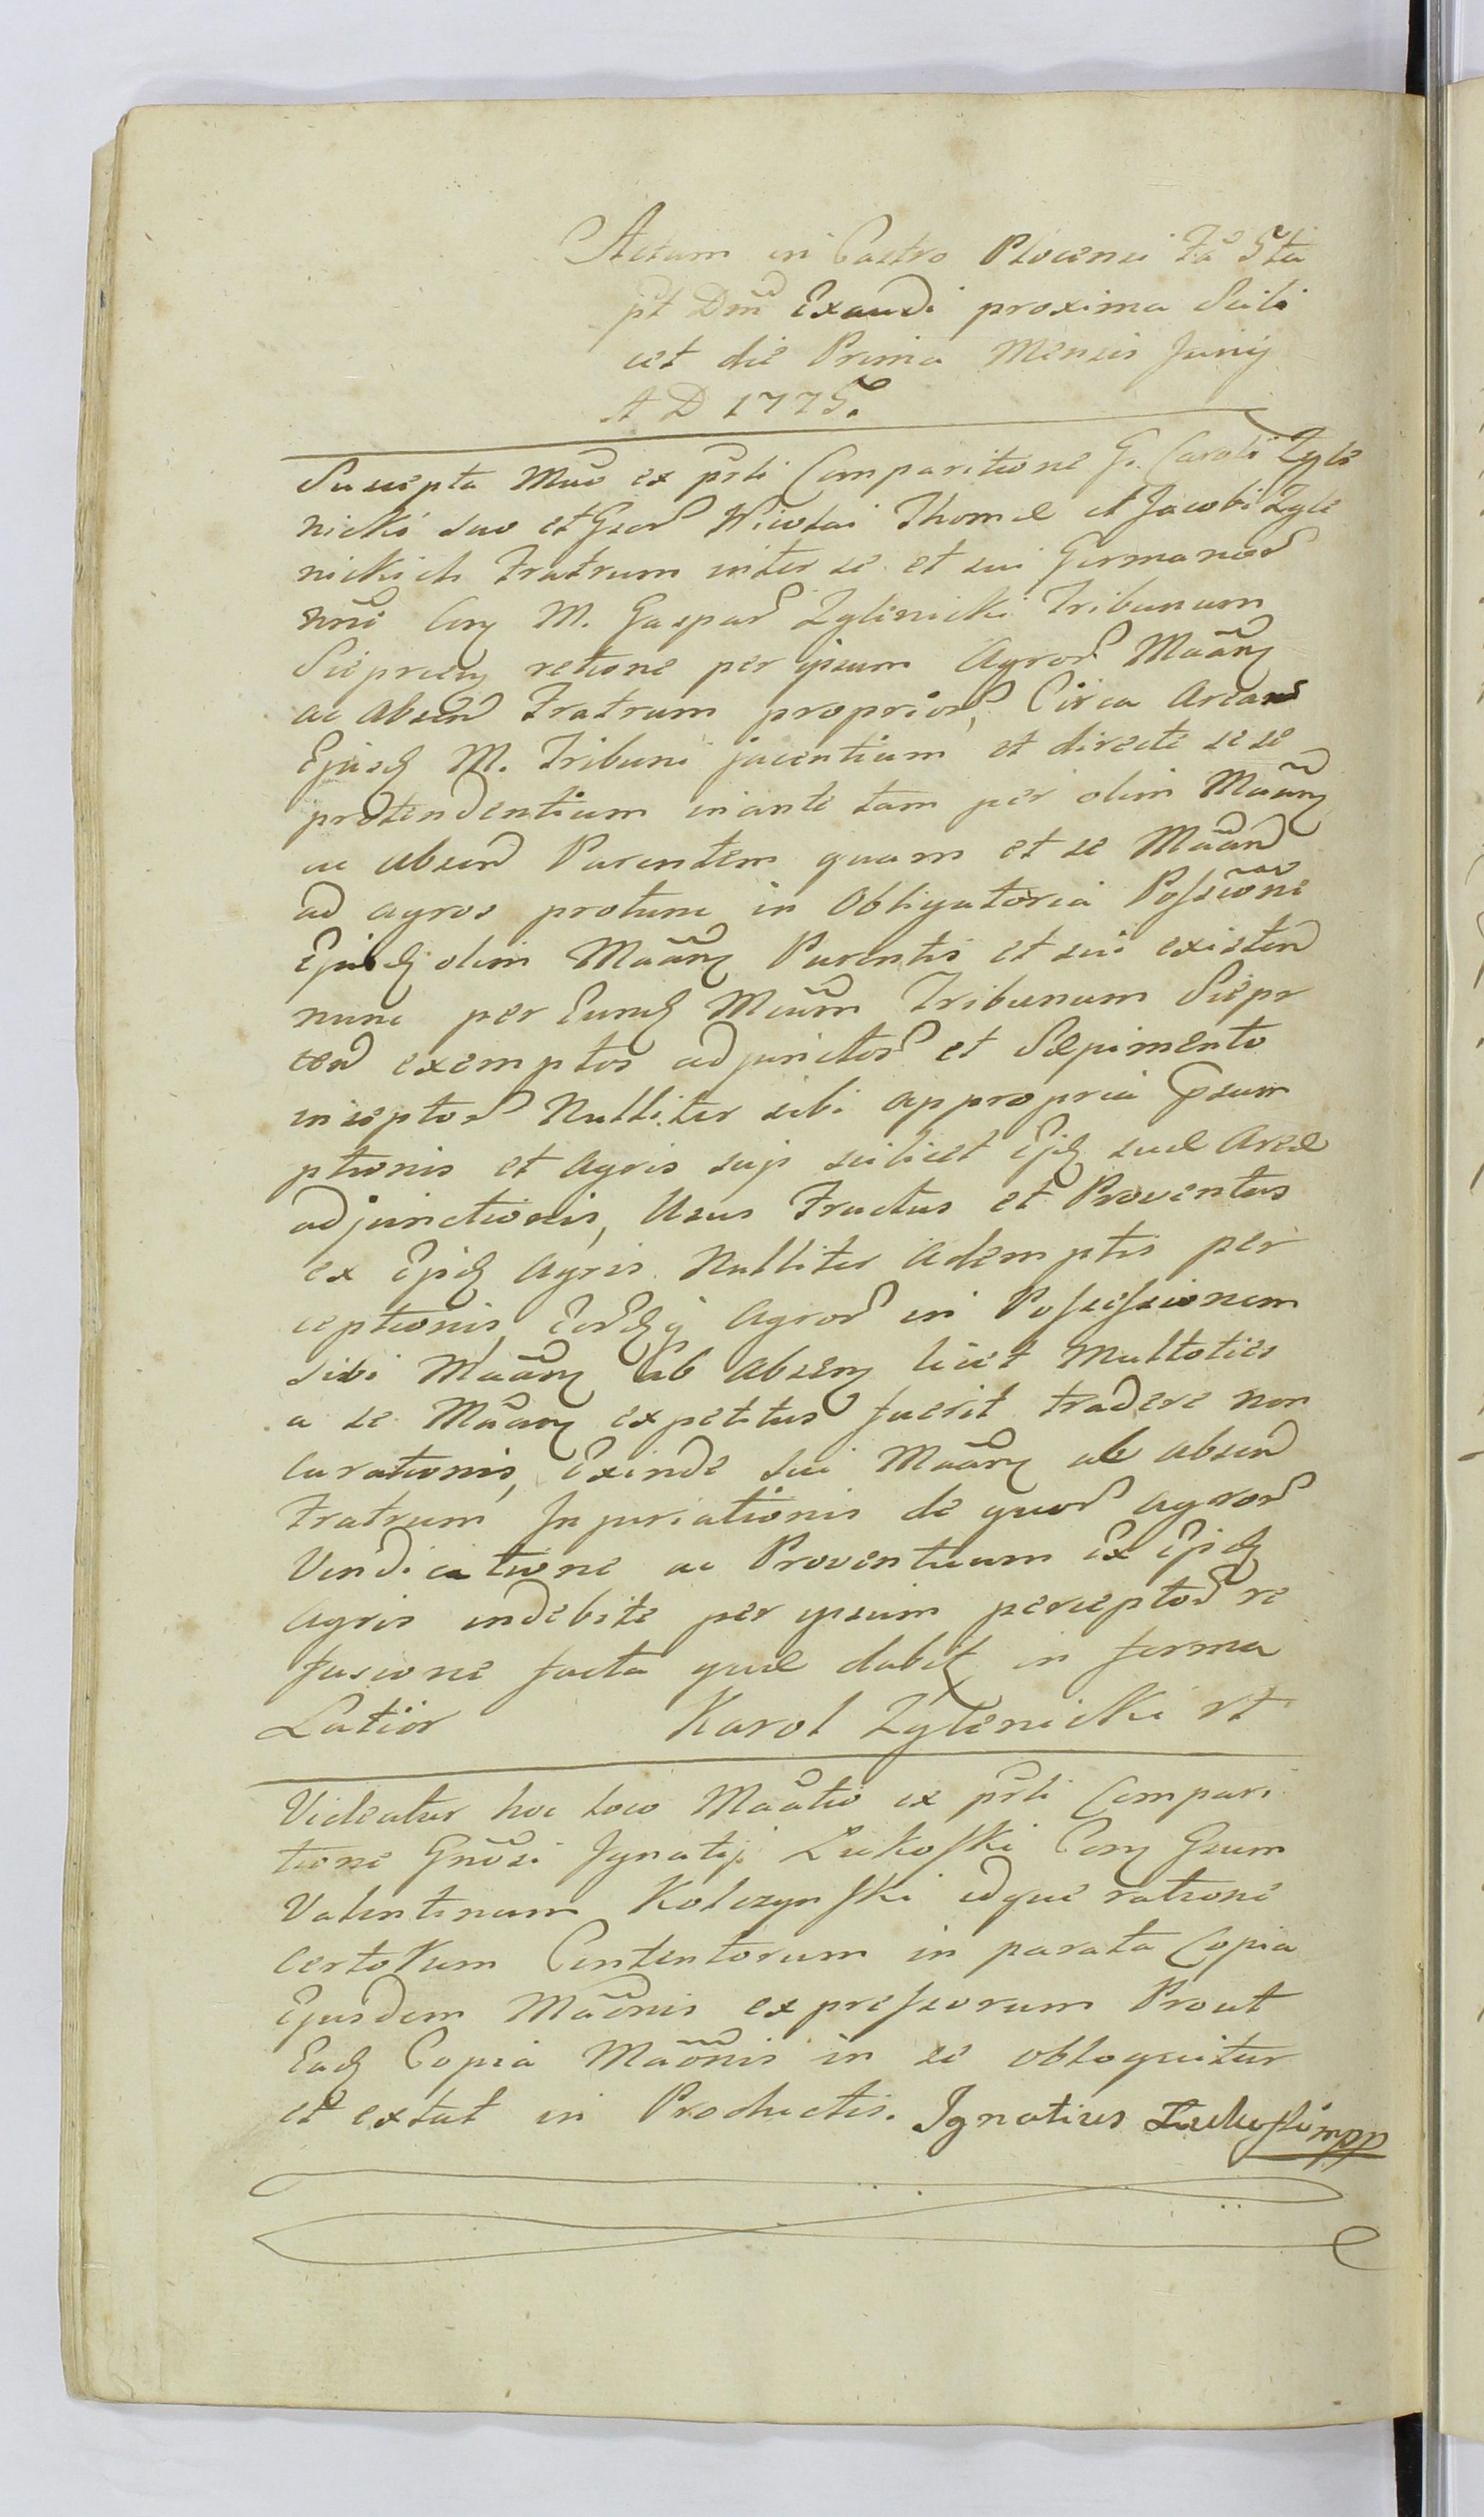 Actum in Castro Plocensi Fã 5ta
pt Dm̃ Exaudi proxima Scili
cet die Prima Mensis Junij
A D 1775.
Suscepta Mãe ex prsti Comparitione G. Caroli Zyle
nicki suo et Gsor Nicolai Thomæ et Jacobi Zyle
nickich Fratrum inter se et sui Germanor
nñe Con M. Gaspar Zylenicki Tribunum
Sieprcen retione per ipsum Agror Mãan
ac Absen Fratrum proprior, Circa Areas
Ejusd M. Tribuni jacentium et directe sese
protendentium inante tam per olim Mãan
ac absen Parentem quam et se Mãan
ad agros protunc in Obligatoria Possõne
Ejusd olim Mãan Parentis et sui existen
nunc per Eund Mãm Tribunum Siepr
cen exemptos adjunctor et Sepimento
inseptor Nulliter sibi appropria Gsum
ptionis et Agris sup scilicet Ejd suæ Areæ
adjunctionis, Usus Fructus et Proventus
ex Ejsd Agris Nulliter Ademptis per
ceptionis, Eordq Agror in Possessionem
sibi Mãan ab absen licet Multoties
a se Mãan expetitus fuerit tradere non
curationis, Exinde sui Mãan ab absen
Fratrum Injuriationis de quor agror
Vendicatione ac Proventuum Ex Ejsd
Agris indebite per ipsum perceptor re
fusione facta quæ dabit in forma
Latior Karol Zylenicki rt
Videatur hoc loco Mãatio ex prsti Compari
tione Gnõsi Ignatij Lukoski Con Gsum
Valentinum Kolczynski idque ratione
certorum Contentorum in parata Copia
Ejusdem Mãonis expressorum Prout
Ead Copia Mãonis in se obloquitur
et extat in Productis. Ignatius Lukoski mpp